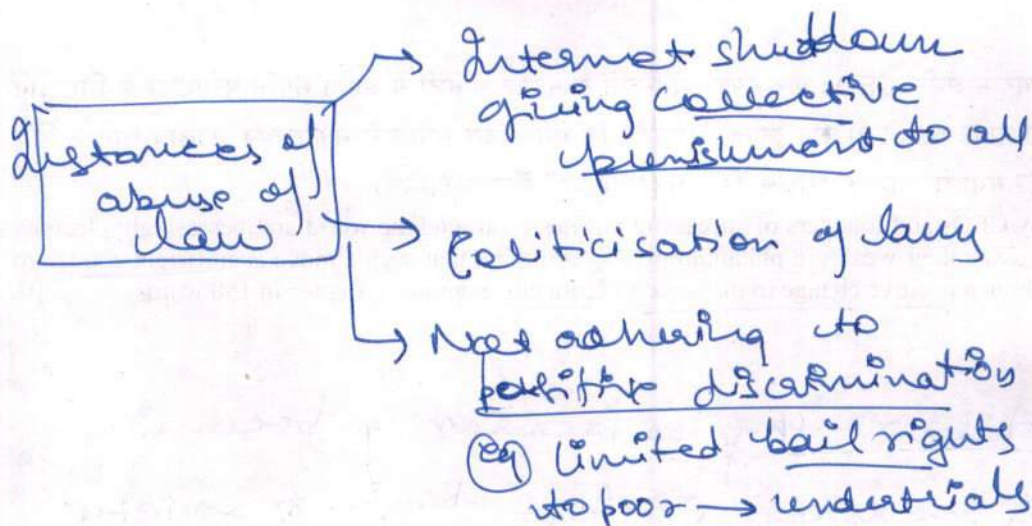 Instances of
abuse of
law
→ Internet shutdown
giving collective
punishment to all
→ Politicisation of laws
→ Not adhering to
positive discrimination
(eg) limited bail rights
to poor → undertrials